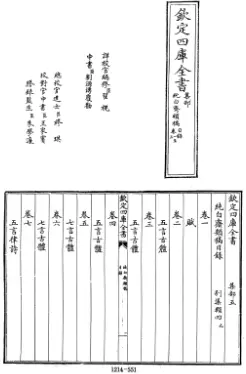 欽定四庫全書
集部
純白齋類稿 目錄
詳校官編修臣
中書臣劉源溥覆勘
總校官進士臣繆琪
校對官中書臣王家賓
謄錄監生臣朱學濂
欽定四庫全書 集部五
純白齋類稿目錄 別集類四 元
卷一
賦
卷二
五言古體
卷三
五言古體
欽定四庫全書 純白齋類稿
卷四
五言古體
卷五
七言古體
卷六
七言古體
卷七
五言律詩
1214-551